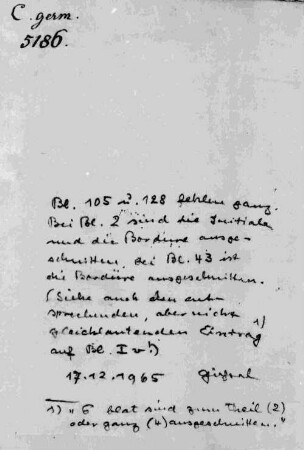 C. germ.
5186.
Bl. 105 u. 128 fehlen ganz.
Bei Bl. 2 sind die Initiale
und die Bordüre ausge-
schnitten, bei Bl. 43 ist
die Bordüre ausgeschnitten.
(Siehe auch den ent-
sprechenden, aber nicht
gleichlautenden Eintrag 1)
auf Bl. I v!)
17.12.1965
1) "6 blat sind zum Theil (2)
oder ganz (4) ausgeschnitten."